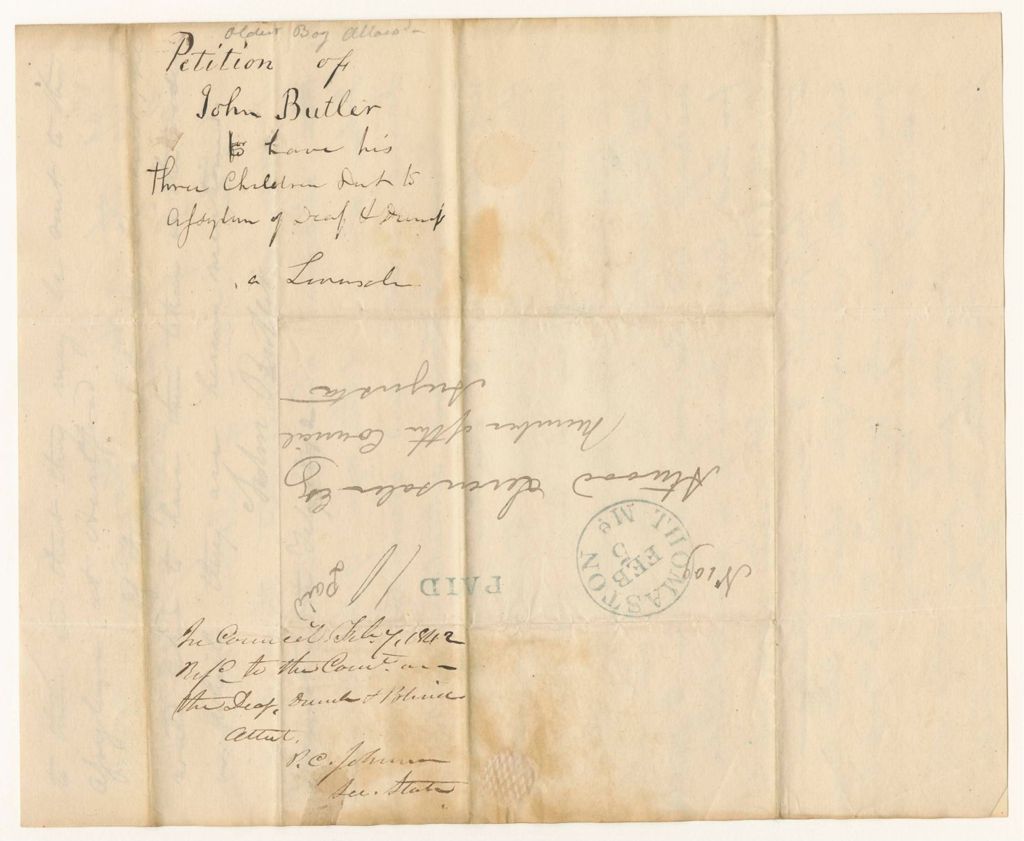 Oldest Boy Allowd
Petition of
John Butler
to have his
three Children Sent to
Assylum of Deaf & Dumb
a Levensaler
Augusta
Member of the Council
Atwood Levensaler Esq
THOMASTON Me
FEB
5
PAID
paid
In Council Feb. 7, 1842
Refd to the Comt on
the Deaf, Dumb & Blind
Attest,
P. C. Johnson
Sec. State